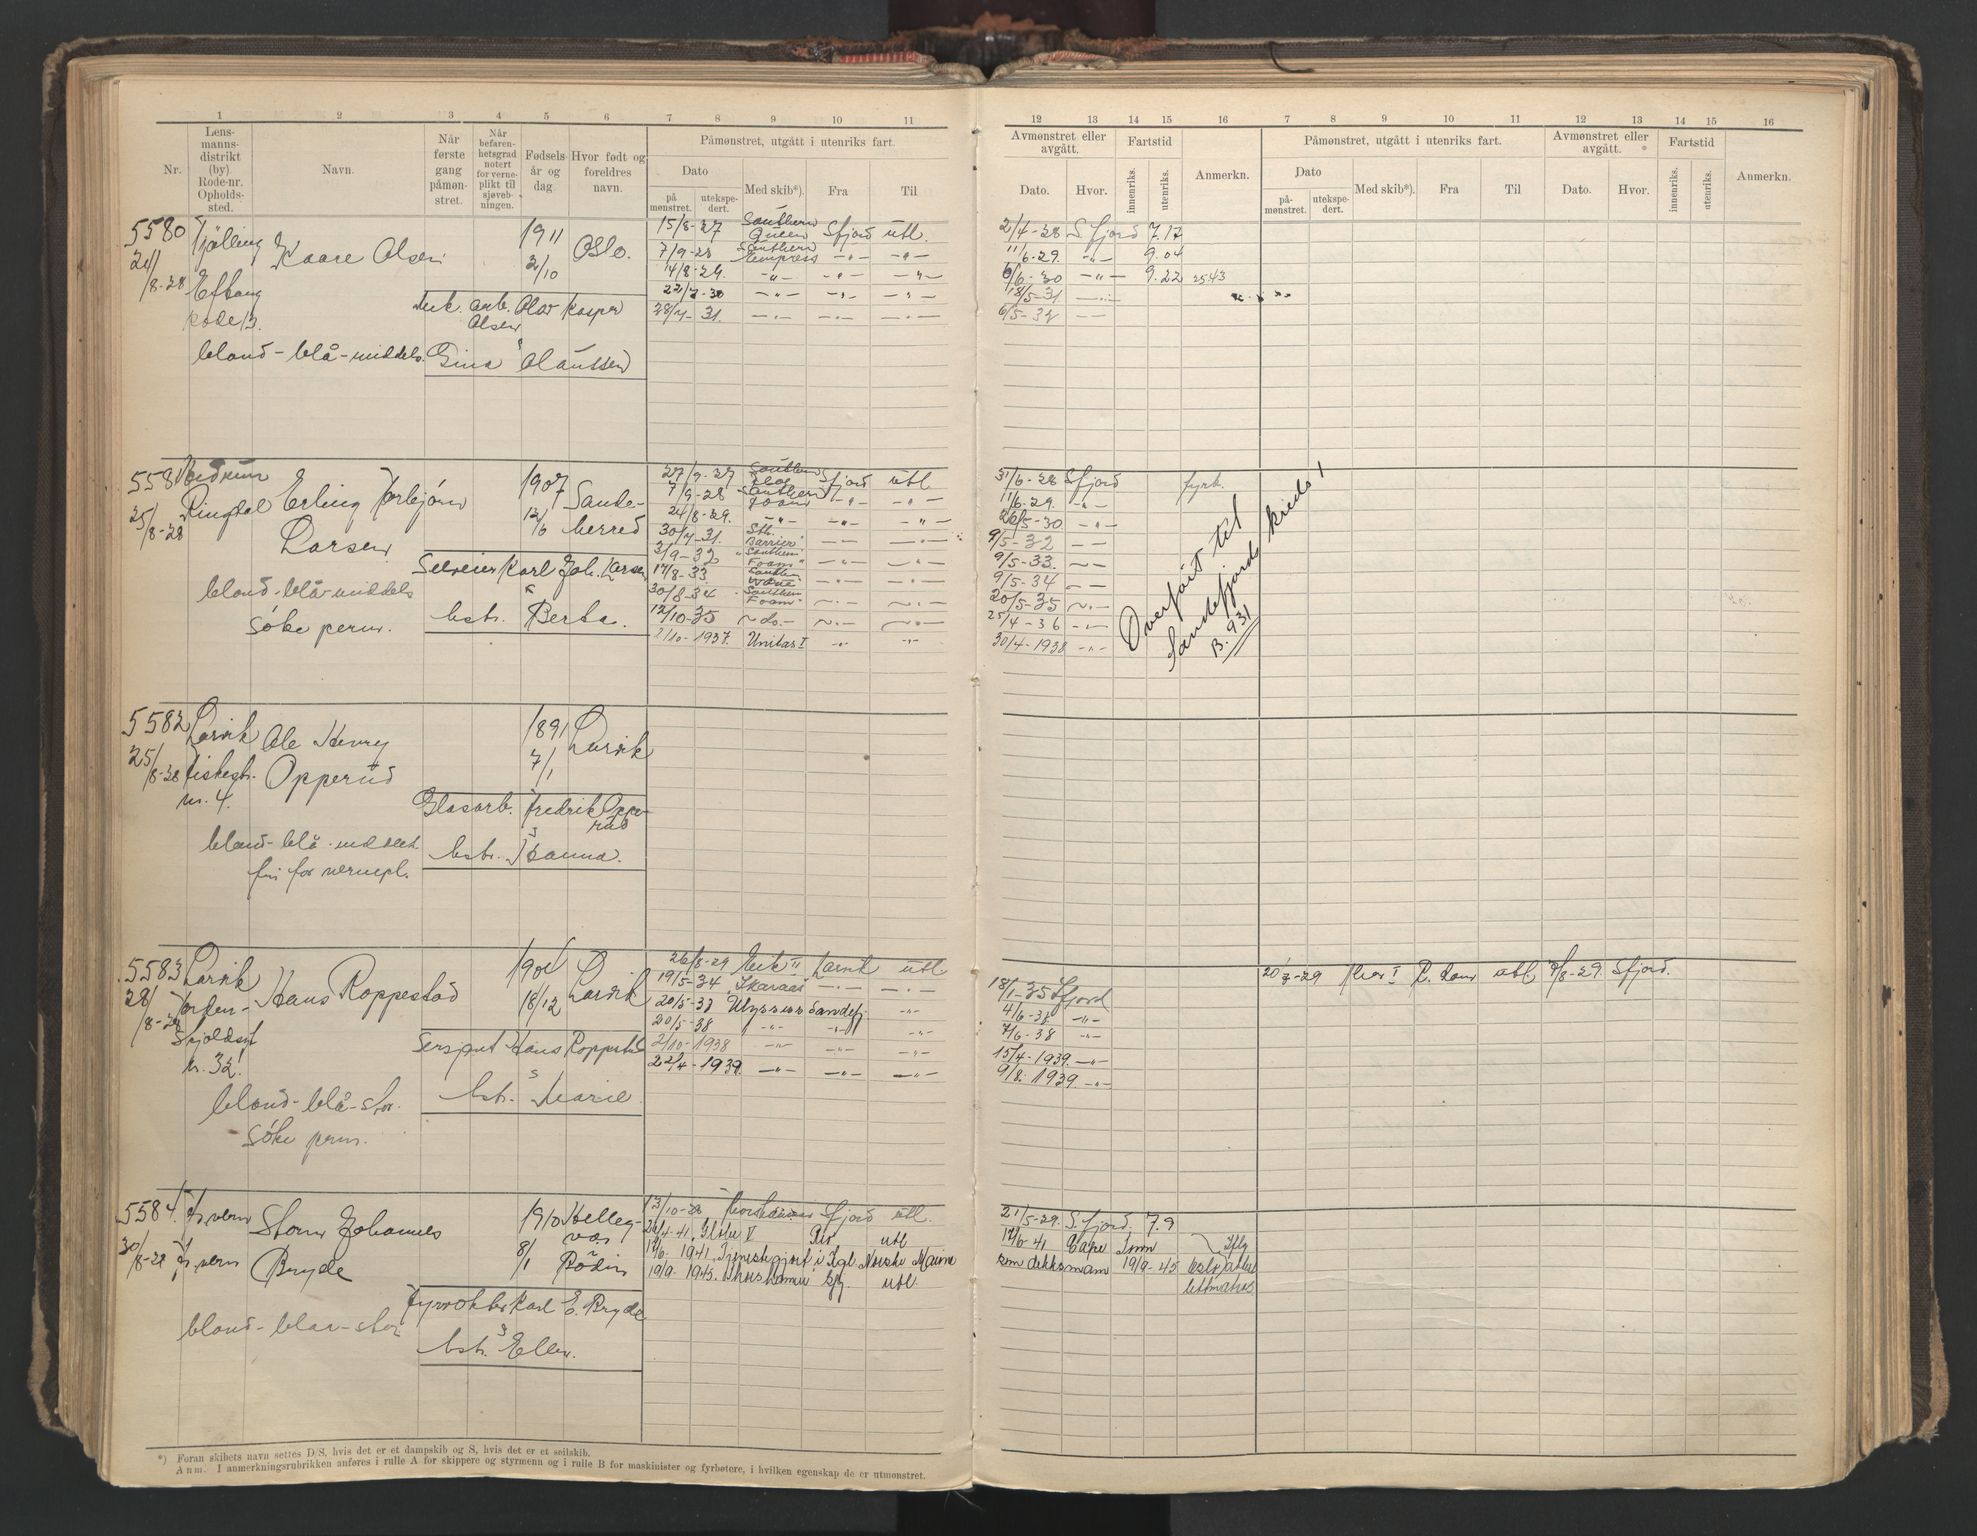 1 2 3 4 5 6 7 8 9 10 11
Nr. Lensmannsdistrikt (by). Rode-nr. Opholdssted. Navn. Når første gang påmønstret. Når befarenhetsgrad notert for verneplikt til sjøvebningen. Fødselsår og dag. Hvor født og foreldres navn.
Påmønstret, utgått i utenriks fart.
Dato på mønstret. utekspedert. Med skib*). Fra Til
12 13 14 15 16 7 8 9 10 11 12 13 14 15 16
Avmønstret eller avgått. Fartstid Anmerkn. Påmønstret, utgått i utenriks fart. Avmønstret eller avgått. Fartstid Anmerkn.
Dato. Hvor. innenriks. utenriks. Dato påmønstret. utekspedert. Med skib*). Fra Til Dato. Hvor. innenriks. utenriks.
5580 Tjølling Kaare Olsen 1911 2/10 Oslo.
/8-28 Eftang
Rode 13.
arb. Olav Kasper
Olsen
blond - blå - middels. Gina Olaussen
15/8-27 Southern Queen Sfjord utl. 2/4-28 S.fjord 7.17
7/9-28 Southern Empress -"- -"- 11/6-29. -"- 9.04
14/8-29. -"- -"- -"- 6/6-30 -"- 9.22 2543
22/7-30 -"- -"- -"- 18/5-31
28/7-31. -"- -"- -"- 6/5-32
5581 Hedrum
25/8-28 Ringdal Erling Torbjørn 1907 12/6 Sandeherred
Larsen
Karl Joh. Larsen
blond - blå - middels
hstr. Berta.
søke perm.
27/9-27 Southern Sfjord utl 31/5-28 Sfjord fyrb.
7/9-28 Southern Foam -"- -"- 11/6-29. -"-
24/8-29. -"- -"- -"- 26/5-30. -"-
30/7-31. Sth. Barrier" -"- -"- 9/5-32
3/9-32 "Southern Foam" -"- -"- 9/5-33.
17/8-33. Southern -"- -"- 9/5-34
30/8-34 "Southern Foam" -"- -"- 20/5-35
12/10-35 -do.- -"- -"- 25/4-36
2/10-1937. Unitas I -"- -"- 30/4-1938 -"-
Overført til
Sandefjords krets!
B. 931
5582 Larvik Ole Henry 1891 7/1 Larvik
25/8-28 Fiskestr. Opperud
nr. 4.
Glasarb. Fredrik Opperud
blond - blå - middels hstr. Hanna.
fri for vernepl.
5583 Larvik Hans Roppestad 1904 18/12 Larvik
28/8-28 Tordenskjoldsgt
nr. 32.
Sersjant Hans Roppestad
blond - blå - stor. hstr. Marie
søke perm.
26/8-29 Eik II Larvik utl
19/5-34 Skaraas -"- -"- 18/1-35 Sfjord
20/5-37 Ulysses Sandefj. -"- 4/6-38 -"-
20/5-38 -"- -"- -"- 7/6-38 -"-
2/10-1938 -"- -"- -"- 15/4-1939. -"-
22/4-1939. -"- -"- -"- 9/8.1939. -"-
20/7-29 Thor I utl. 9/8-29. Sfjord.
5584. Storm Johannes 1910 8/1
30/8-28 Bryde
Karl E. Bryde
blond - blaa - stor hstr. Ellen.
13/10-28 Thorshammer Sfjord utl. 21/5-29. S.fjord. 7.9
26/4-41. Globe V utl 17/6-41 Cape Town
17/6 1941. Tjenestegjort i Kgl. Norske Marine
som dekksmann 19/9-45
19/9.1945. Thorshammer utl.
*) Foran skibets navn settes D/S, hvis det er et dampskib og S, hvis det er et seilskib.
Anm. I anmerkningsrubrikken anføres i rulle A for skippere og styrmenn og i rulle B for maskinister og fyrbøtere, i hvilken egenskap de er utmønstret.